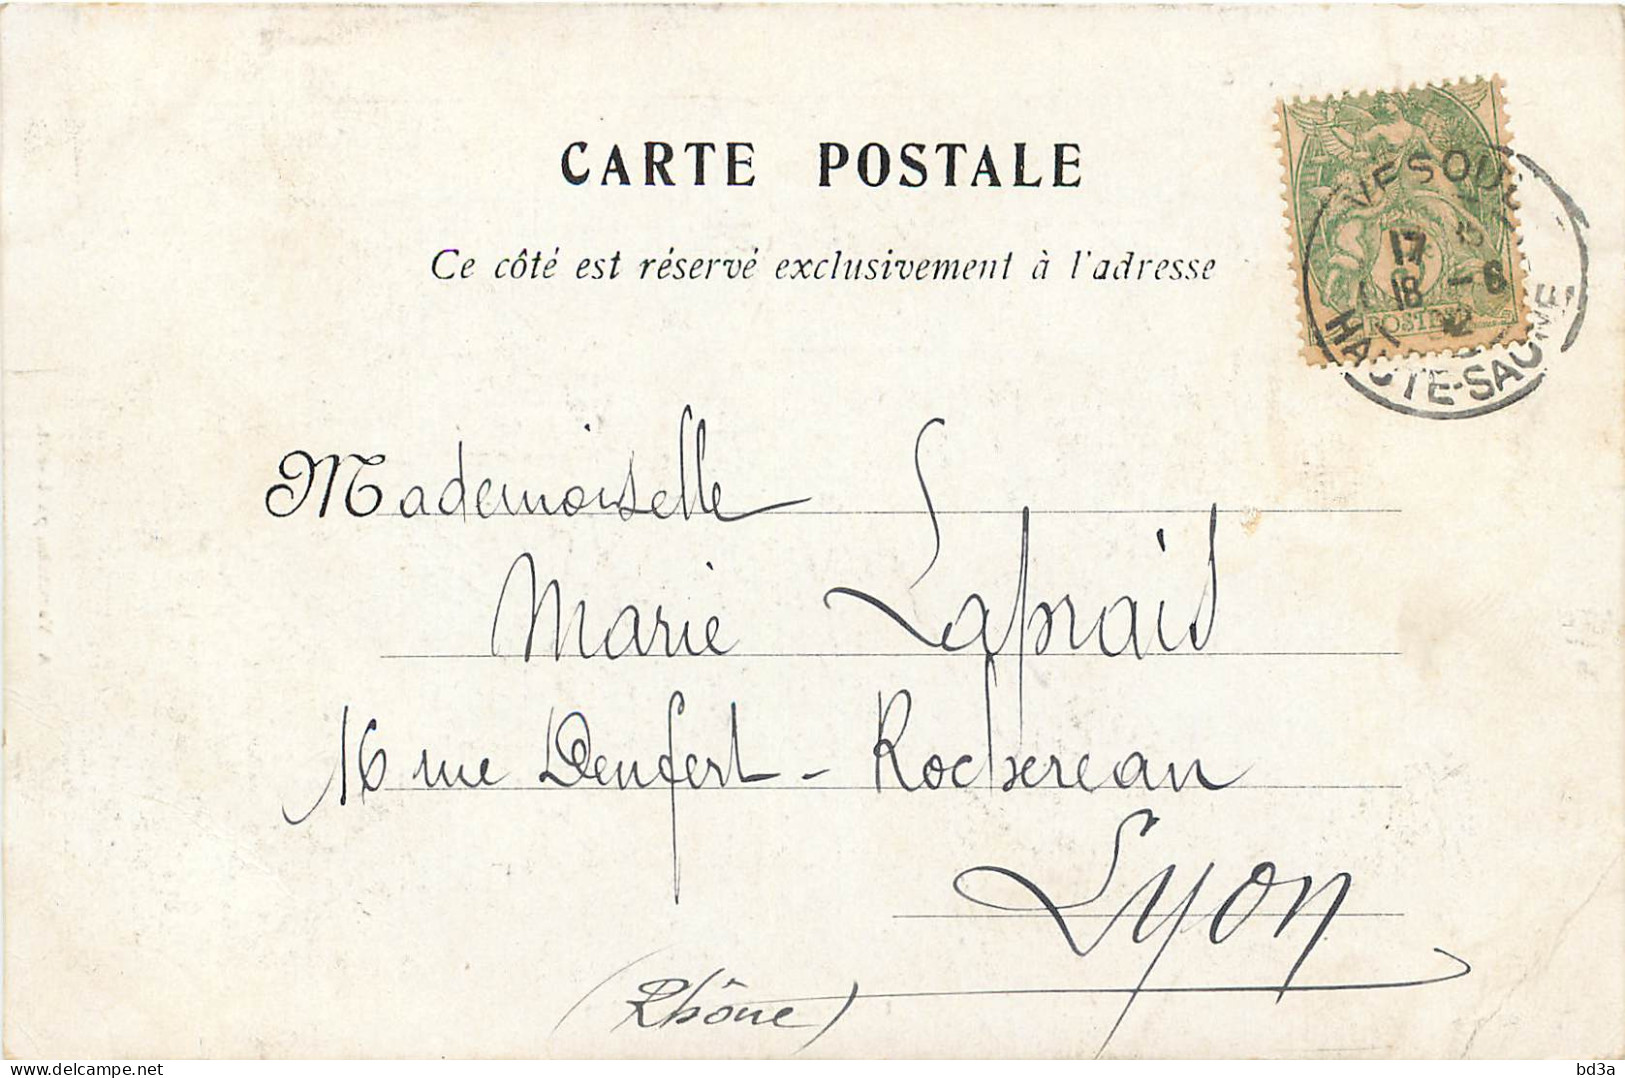 CARTE POSTALE
Ce côté est réservé exclusivement à l'adresse
VESOUL
17
18 -6
POSTES
HAUTE-SAONE
Mademoiselle
Marie Laprais
16 rue Denfert-Rochereau
Lyon
(Rhône)
bd3a